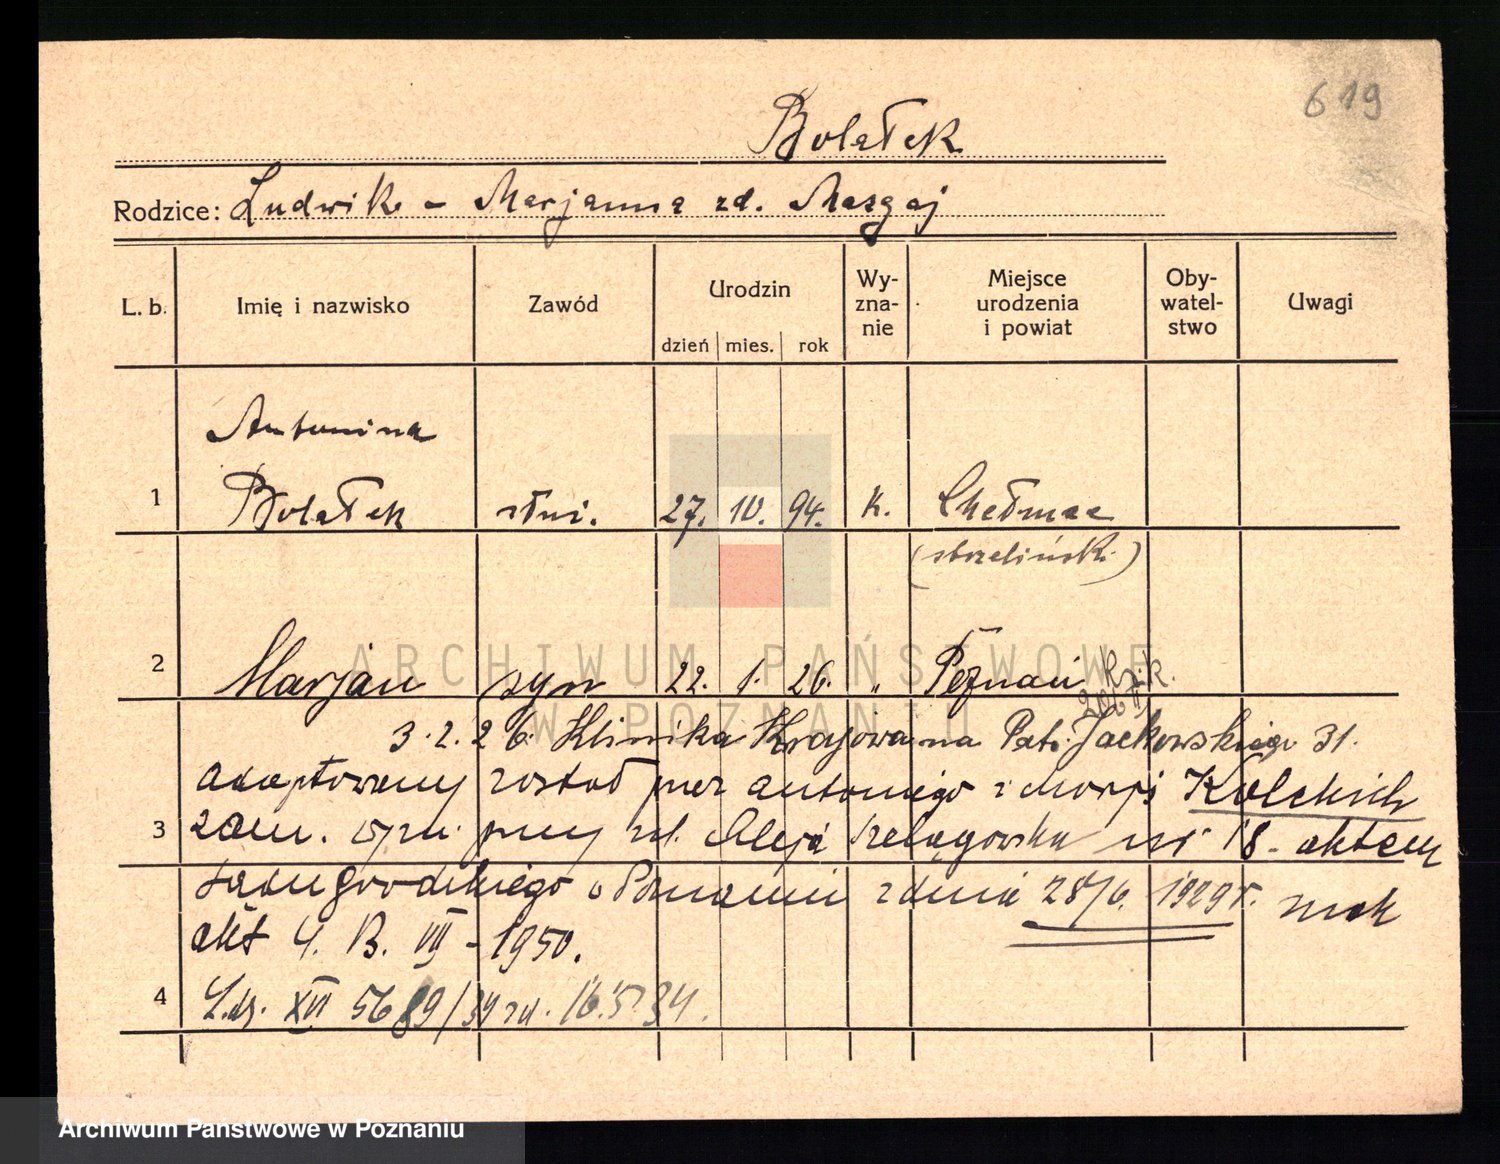 619
Bolałek
Rodzice: Ludwik - Marjanna zd. Mazgaj
L. b. Imię i nazwisko Zawód Urodzin dzień mies. rok Wy-zna-nie Miejsce urodzenia i powiat Oby-watel-stwo Uwagi
Antonina
1 Bolałek służ. 27. 10. 94. k. Chełmce
(strzeliński)
2 Marjan syn 22. 1. 26. " Poznań
3.2.26 Klinika Krajowa na Jackowskiego 31.
adoptowany został przez Antoniego i Marji Kolekich
3 zam. przy ul. Aleja Szelągowska nr 18. aktem
Sądu grodzkiego w Poznaniu z dnia 28/6. 1929 r. znak
akt 4. B. VII - 1950.
4 L.dz. XVI 5689/34 zd. 16.5.34.
ARCHIWUM PAŃSTWOWE
W POZNANIU
Archiwum Państwowe w Poznaniu